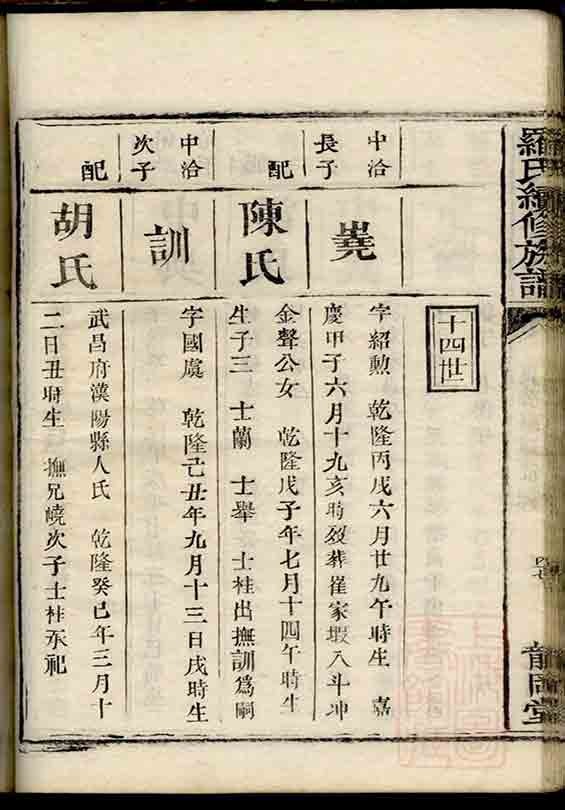 羅氏續修族譜
龍岡堂
十四世
中洽
長子
嶤
字紹勲 乾隆丙戌六月廿九午時生 嘉
慶甲子六月十九亥時歿葬崔家塅入斗坤
配
陳氏
金聲公女 乾隆戊子年七月十四午時生
生子三 士蘭 士舉 士桂出撫訓爲嗣
中洽
次子
訓
字國虞 乾隆己丑年九月十三日戌時生
配
胡氏
武昌府漢陽縣人氏 乾隆癸巳年三月十
二日丑時生 撫兄嶢次子士桂承祀